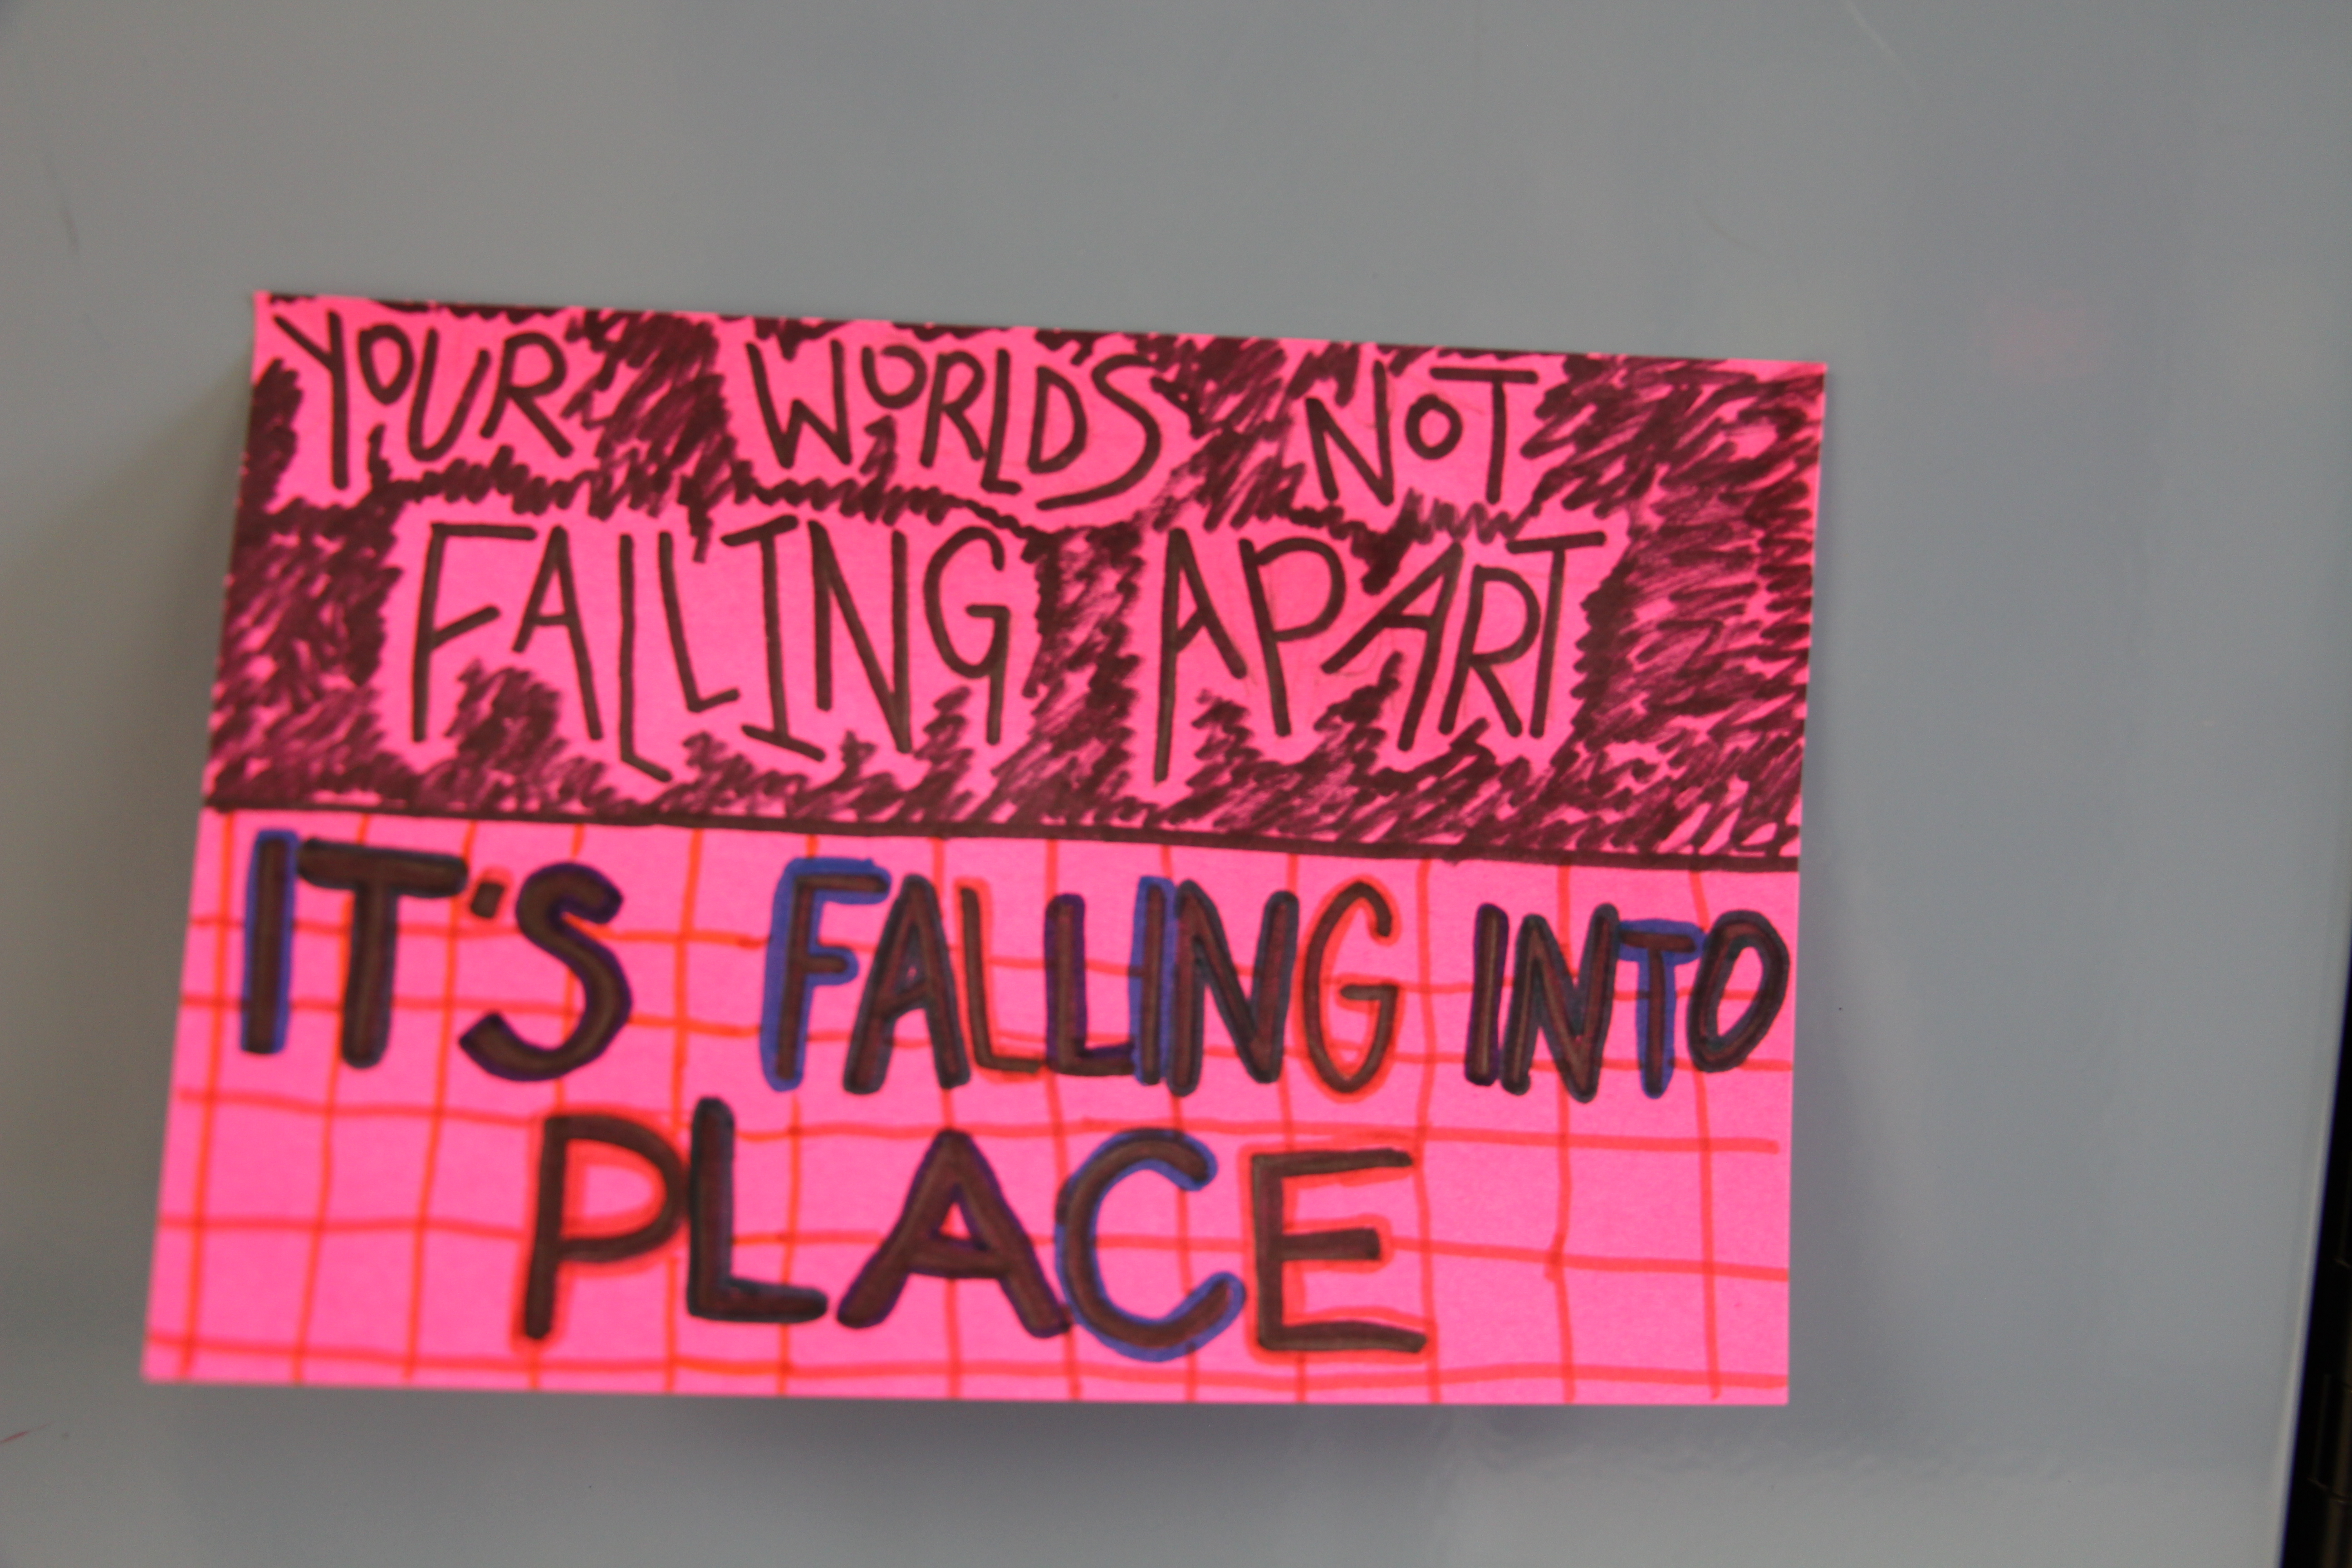 YOUR WORLDS NOT
FALLING APART
IT'S FALLING INTO
PLACE